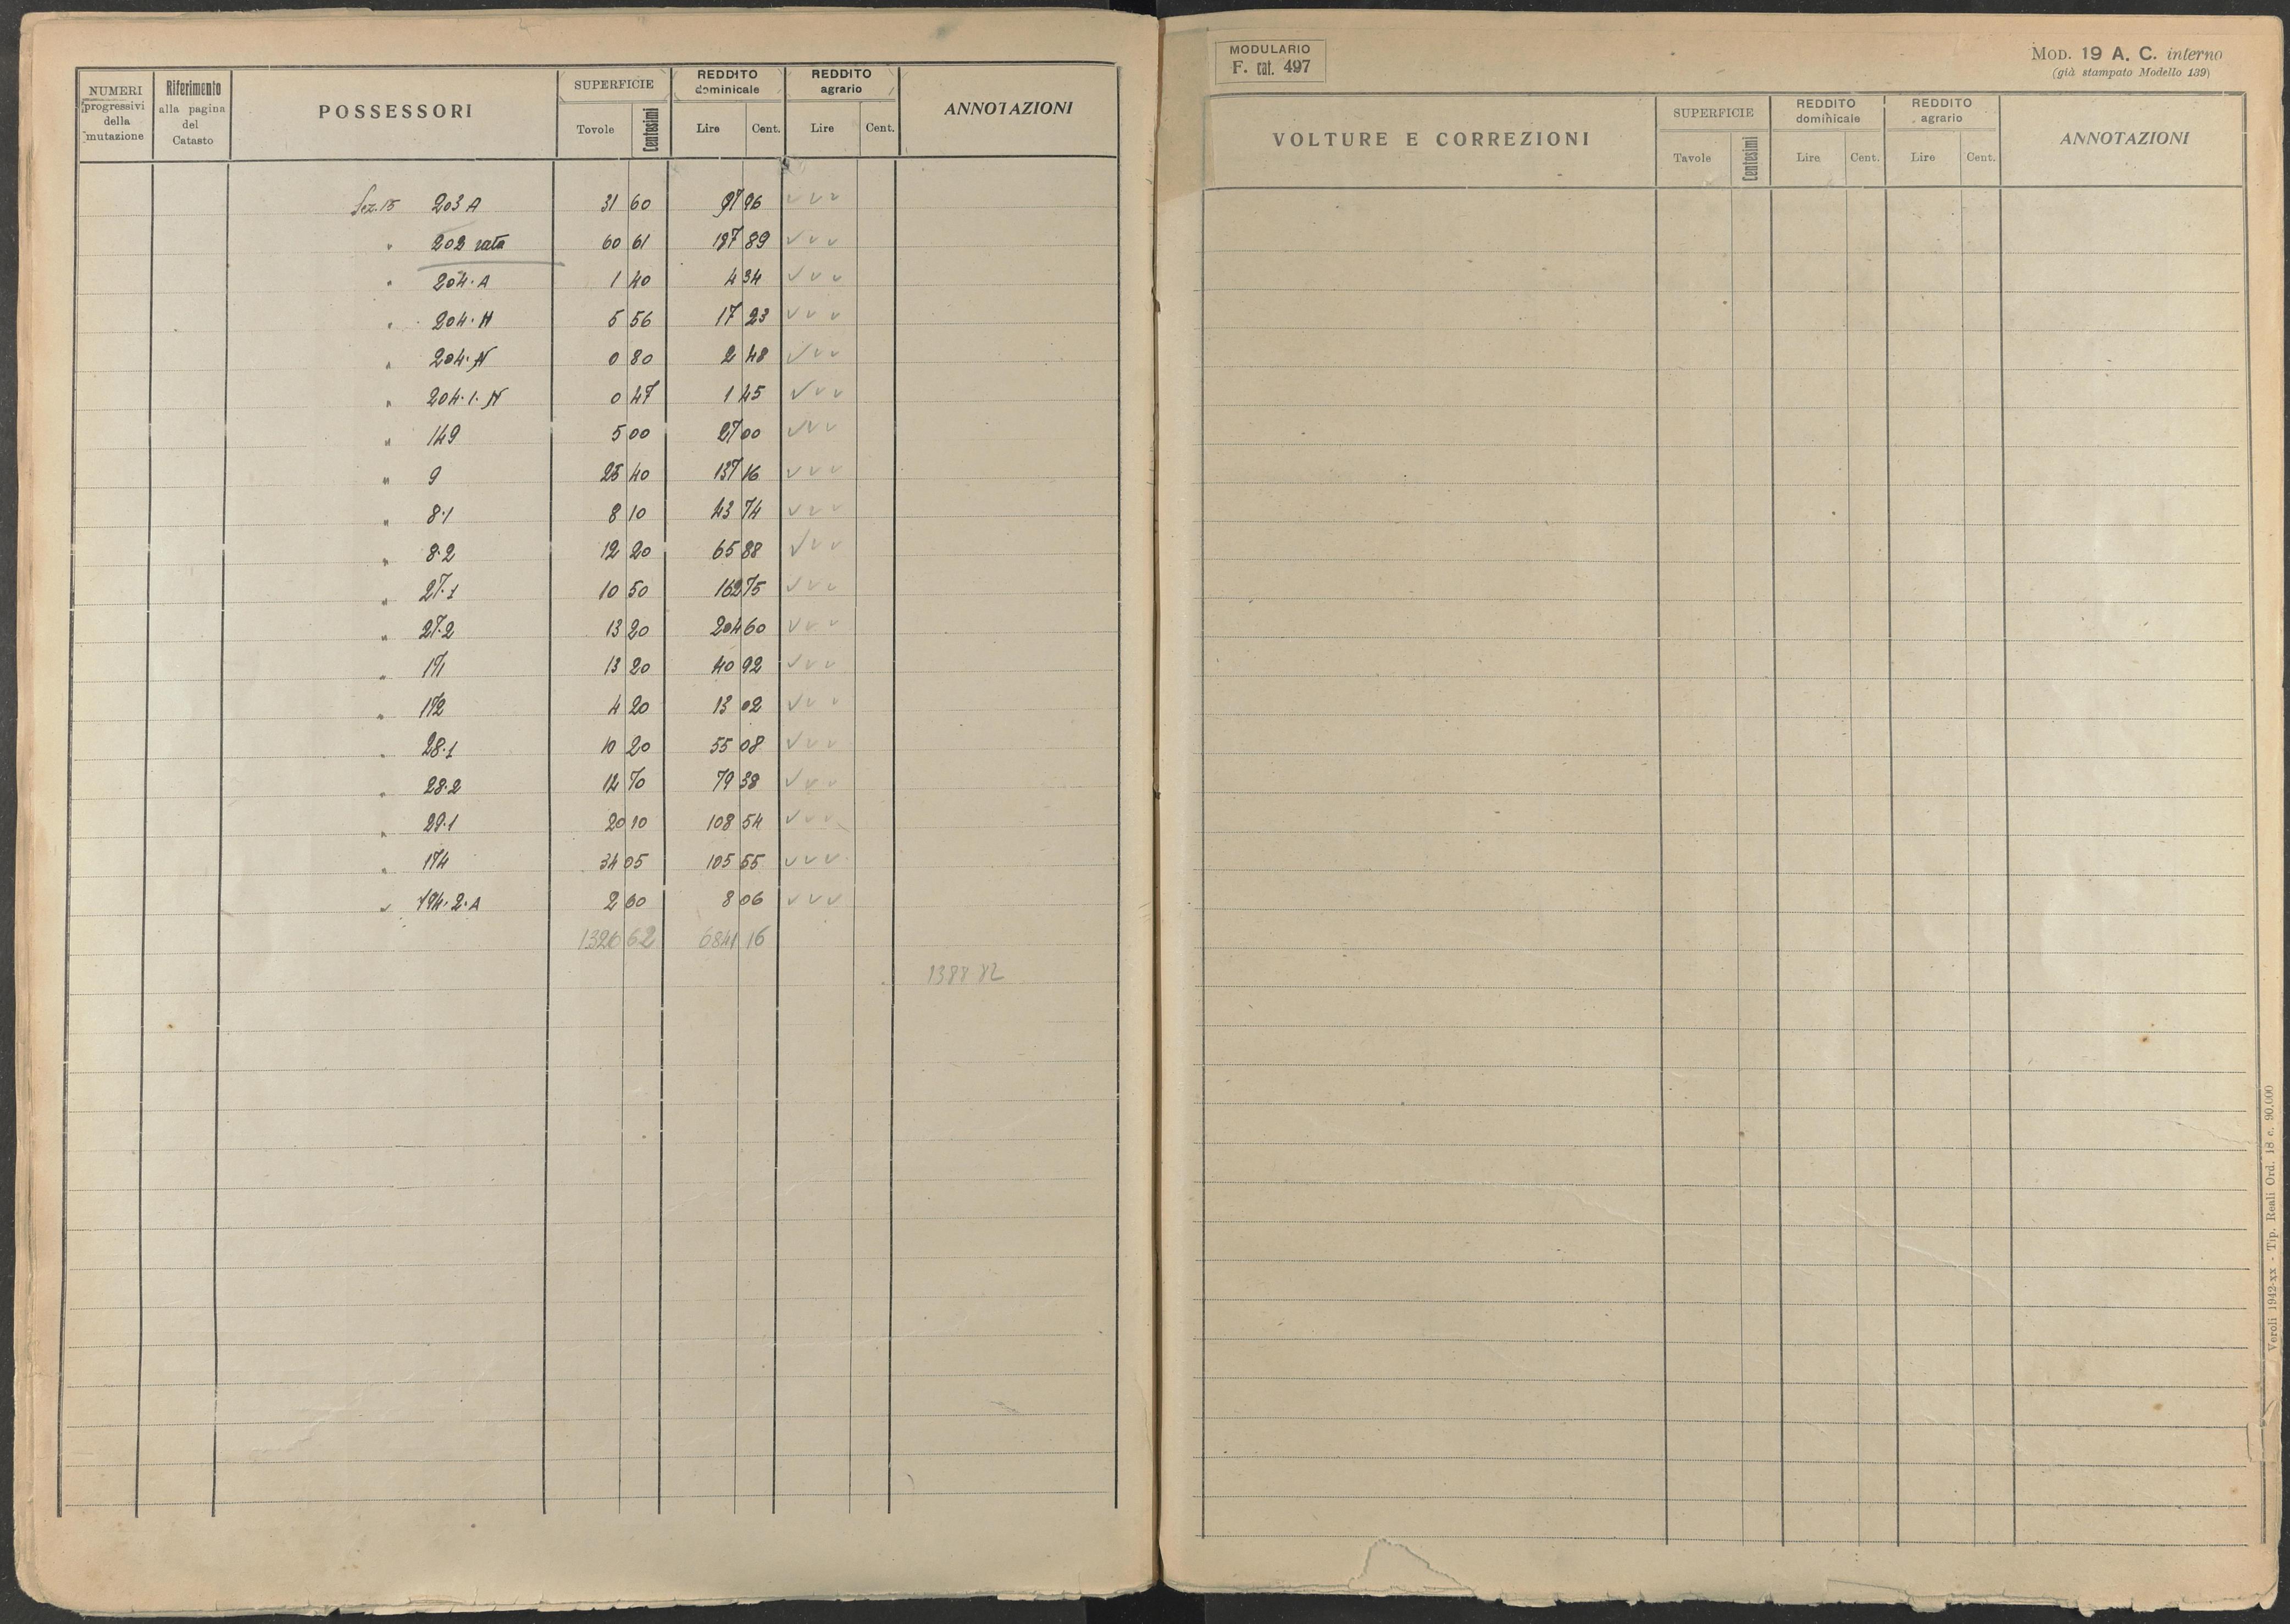 NUMERI progressivi della mutazione | Riferimento alla pagina del Catasto | POSSESSORI | SUPERFICIE Tovole Centesimi | REDDITO dominicale Lire Cent. | REDDITO agrario Lire Cent. | ANNOTAZIONI
Sez. 15 203 A 31 60 97 96
" 202 rata 60 61 187 89
" 204·A 1 40 4 34
" 204·H 5 56 17 23
" 204·N 0 80 2 48
" 204·1·N 0 47 1 45
" 149 5 00 27 00
" 9 25 40 137 16
" 8·1 8 10 43 74
" 8·2 12 20 65 88
" 27·1 10 50 162 75
" 27·2 13 20 204 60
" 171 13 20 40 92
" 172 4 20 13 02
" 28·1 10 20 55 08
" 28·2 14 70 79 38
" 29·1 20 10 108 54
" 174 34 05 105 55
" 194·2·A 2 60 8 06
1326 62 6841 16
1388 82
MODULARIO
F. cat. 497
MOD. 19 A. C. interno
(già stampato Modello 139)
VOLTURE E CORREZIONI | SUPERFICIE Tavole Centesimi | REDDITO dominicale Lire Cent. | REDDITO agrario Lire Cent. | ANNOTAZIONI
Veroli 1942-XX - Tip. Reali Ord. 18 c. 90.000